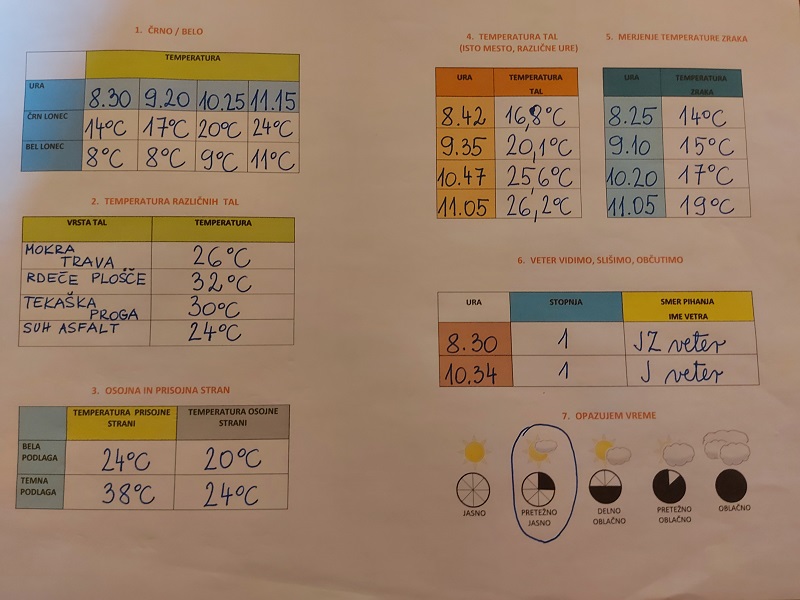 1. ČRNO / BELO
TEMPERATURA
URA 8.30 9.20 10.25 11.15
ČRN LONEC 14°C 17°C 20°C 24°C
BEL LONEC 8°C 8°C 9°C 11°C
2. TEMPERATURA RAZLIČNIH TAL
VRSTA TAL TEMPERATURA
MOKRA
TRAVA 26°C
RDEČE PLOŠČE 32°C
TEKAŠKA
PROGA 30°C
SUH ASFALT 24°C
3. OSOJNA IN PRISOJNA STRAN
TEMPERATURA PRISOJNE TEMPERATURA OSOJNE
STRANI STRANI
BELA
PODLAGA 24°C 20°C
TEMNA
PODLAGA 38°C 24°C
4. TEMPERATURA TAL
(ISTO MESTO, RAZLIČNE URE)
URA TEMPERATURA
TAL
8.42 16,8°C
9.35 20,1°C
10.47 25,6°C
11.05 26,2°C
5. MERJENJE TEMPERATURE ZRAKA
URA TEMPERATURA
ZRAKA
8.25 14°C
9.10 15°C
10.20 17°C
11.05 19°C
6. VETER VIDIMO, SLIŠIMO, OBČUTIMO
URA STOPNJA SMER PIHANJA
IME VETRA
8.30 1 JZ veter
10.34 1 J veter
7. OPAZUJEM VREME
JASNO PRETEŽNO DELNO PRETEŽNO OBLAČNO
JASNO OBLAČNO OBLAČNO